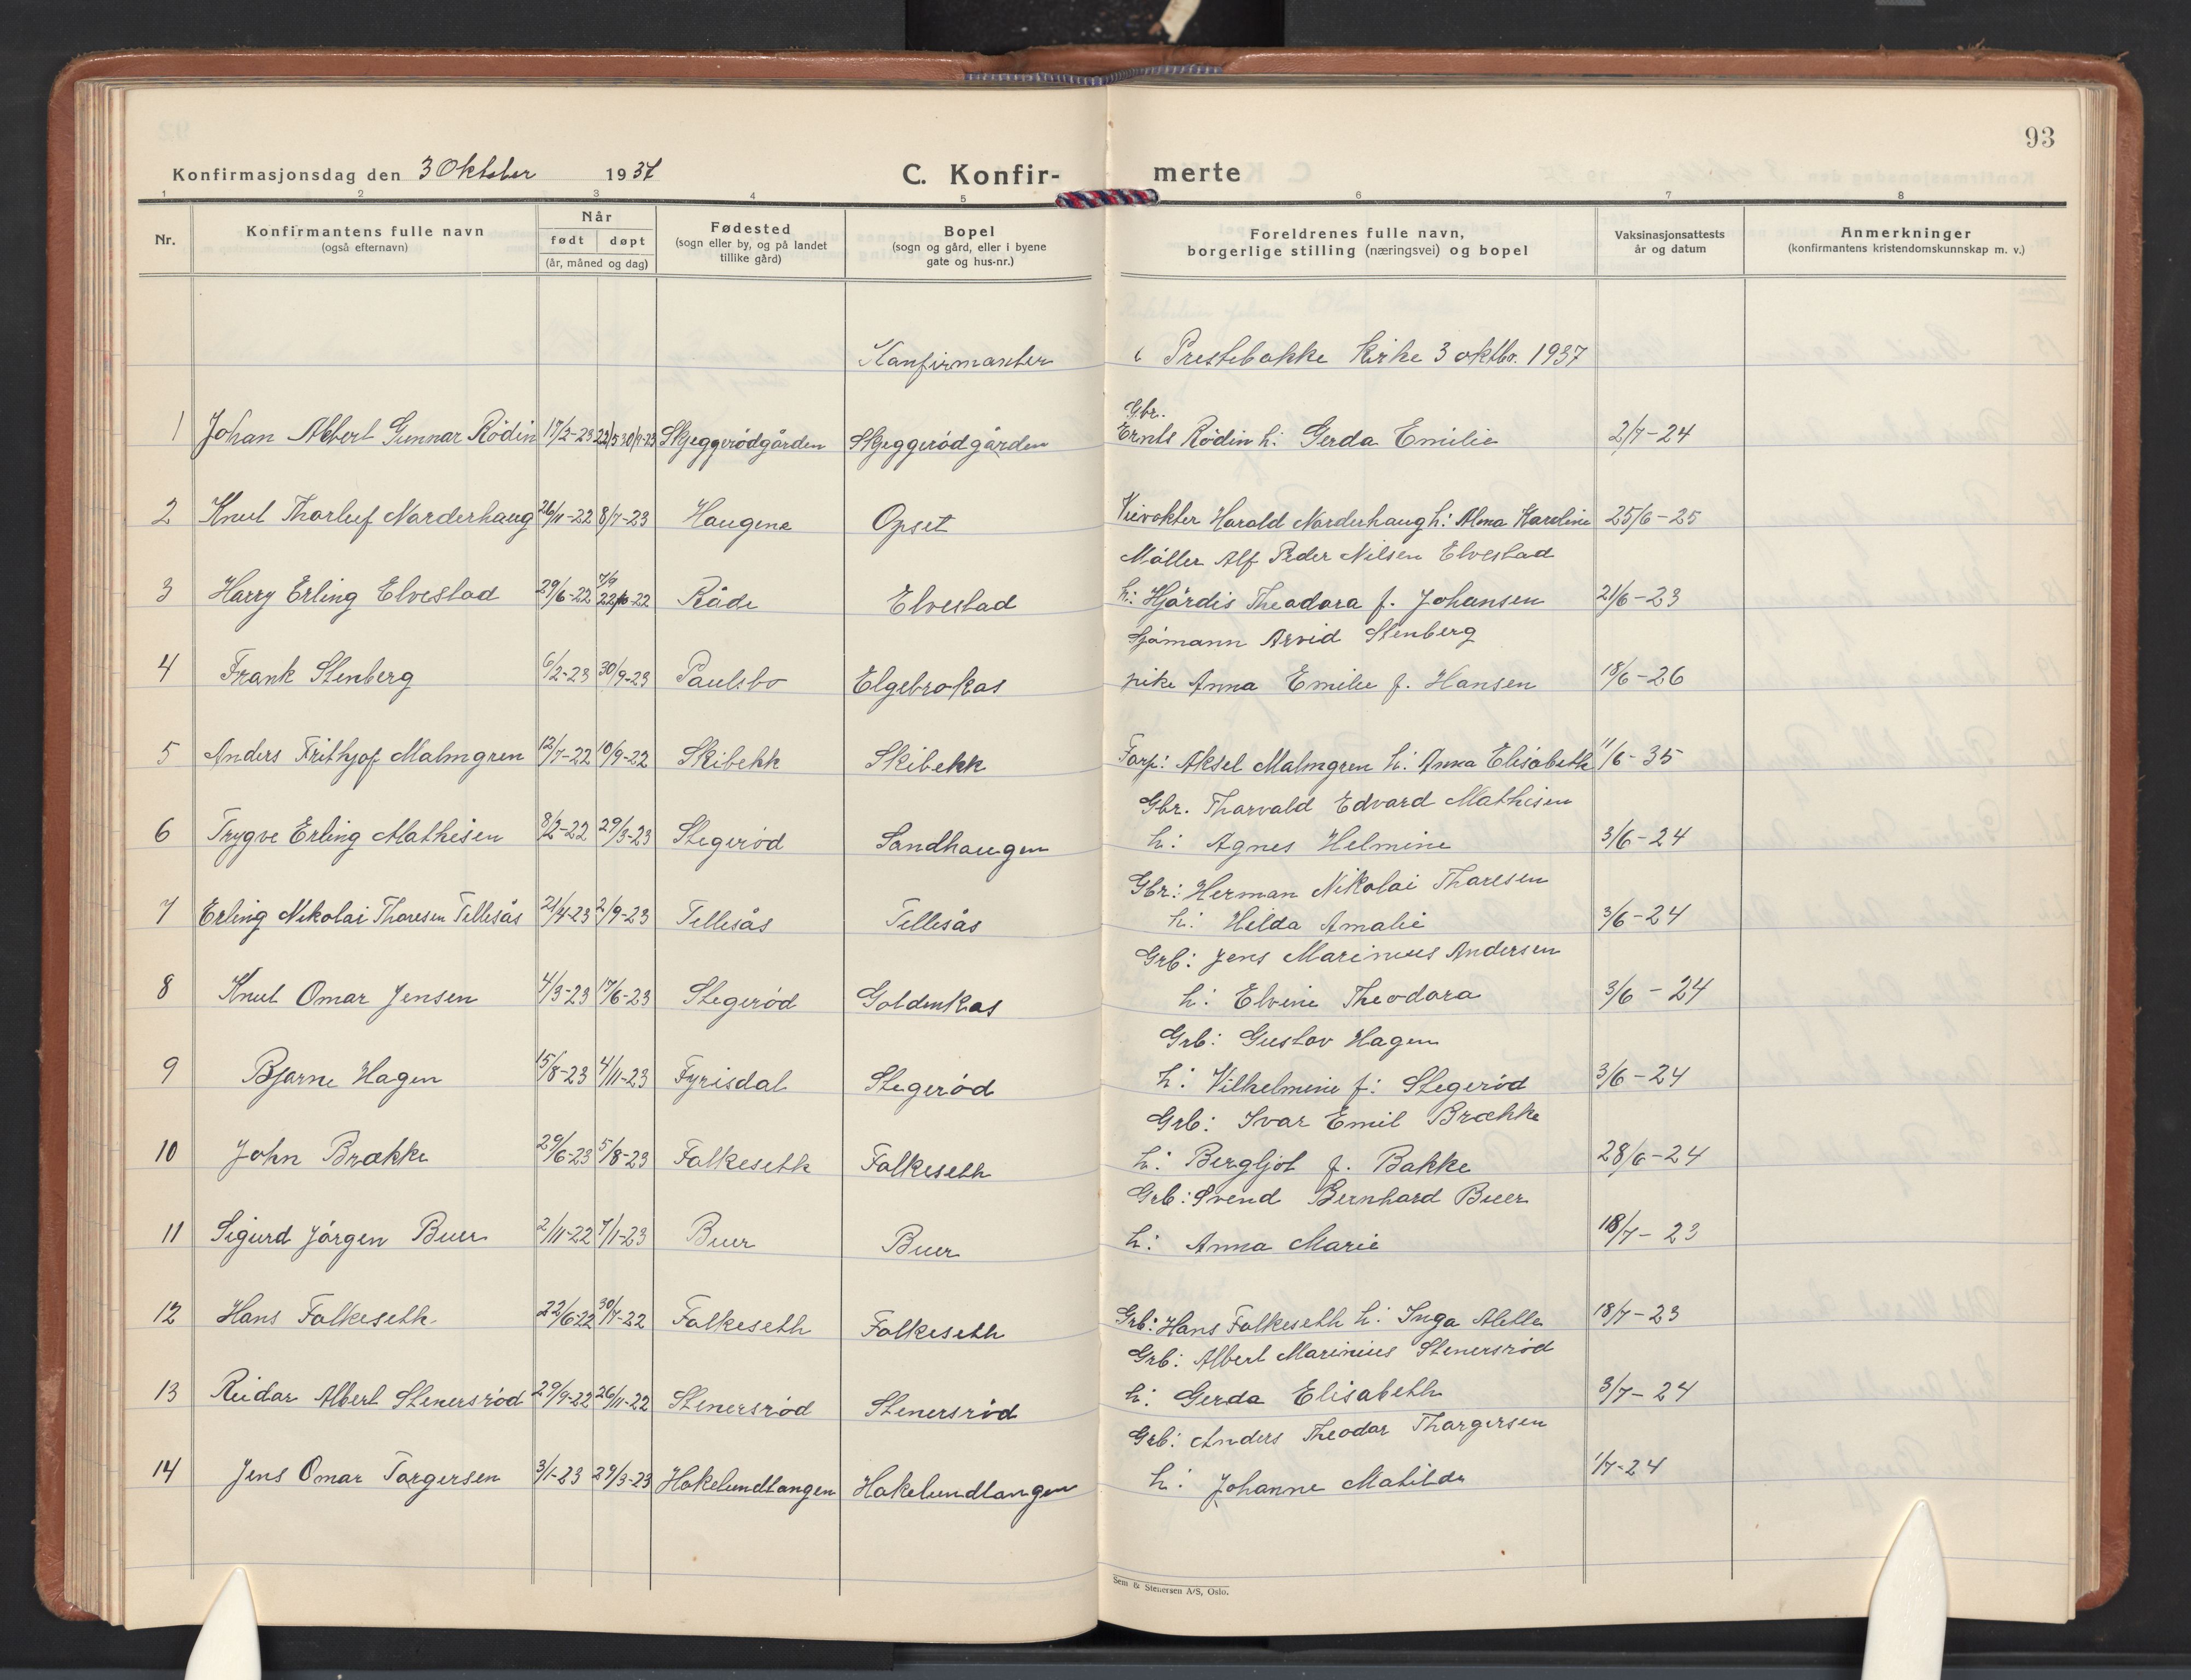 93
Konfirmasjonsdag den 3 Oktober 1937
C. Konfir-
merte
1 2 3 4 5 6 7 8
Nr.
Konfirmantens fulle navn
(også efternavn)
Når
født døpt
(år, måned og dag)
Fødested
(sogn eller by, og på landet
tillike gård)
Bopel
(sogn og gård, eller i byene
gate og hus-nr.)
Foreldrenes fulle navn,
borgerlige stilling (næringsvei) og bopel
Vaksinasjonsattests
år og datum
Anmerkninger
(konfirmantens kristendomskunnskap m. v.)
Konfirmanter i Prestebakke kirke 3 oktbr. 1937
Gbr.
1 Johan Albert Gunnar Rödin 17/2-23 22/5 30/9-23 Skjeggerödgården Skjeggerödgården Ernts Rödin h: Gerda Emilie 2/7-24
2 Knut Thorleif Norderhaug 26/11-22 8/7-23 Haugene Opset Veivokter Harald Norderhaug h: Alma Karoline 25/6-25
Möller Alf Peder Nilsen Elvestad
3 Harry Erling Elvestad 29/6-22 7/9 22/10-22 Råde Elvestad h: Hjördis Theodora f. Johansen 21/6-23
Sjömann Arvid Stenberg
4 Frank Stenberg 6/2-23 30/9-23 Paulsbo Elgebrokas pike Anna Emilie f. Hansen 18/6-26
5 Anders Frithjof Malmgren 12/7-22 10/9-22 Skibekk Skibekk Forp: Aksel Malmgren h: Anna Elisabeth 11/6-35
Gbr. Thorvald Edvard Mathisen
6 Trygve Erling Mathisen 8/2-22 29/3-23 Stegeröd Sandhaugen h: Agnes Helmine 3/6-24
Gbr: Herman Nikolai Thoresen
7 Erling Nikolai Thoresen Tellesås 21/4-23 2/9-23 Tellesås Tellesås h: Hilda Amalie 3/6-24
Grb: Jens Marinius Andersen
8 Knut Omar Jensen 4/3-23 17/6-23 Stegeröd Goldenkas h: Elvine Theodora 3/6-24
Grb: Gustav Hagen
9 Bjarne Hagen 15/8-23 4/11-23 Fyrisdal Stegeröd h: Vilhelmine f: Stegeröd 3/6-24
Grb: Ivar Emil Brække
10 John Brække 29/6-23 5/8-23 Folkeseth Folkeseth h: Bergljot f. Bakke 28/6-24
Grb: Svend Bernhard Buer
11 Sigurd Jörgen Buer 2/11-22 7/1-23 Buer Buer h: Anna Marie 18/7-23
12 Hans Folkeseth 22/6-22 30/7-22 Folkeseth Folkeseth Grb: Hans Folkeseth h: Inga Alette 18/7-23
Grb: Albert Marinius Stenersröd
13 Reidar Albert Stenersröd 29/9-22 26/11-22 Stenersröd Stenersröd h: Gerda Elisabeth 3/7-24
Grb: Anders Theodor Thorgersen
14 Jens Omar Torgersen 3/1-23 29/3-23 Hokelundtangen Hokelundtangen h: Johanne Matilde 1/7-24
Sem & Stenersen A/S, Oslo.